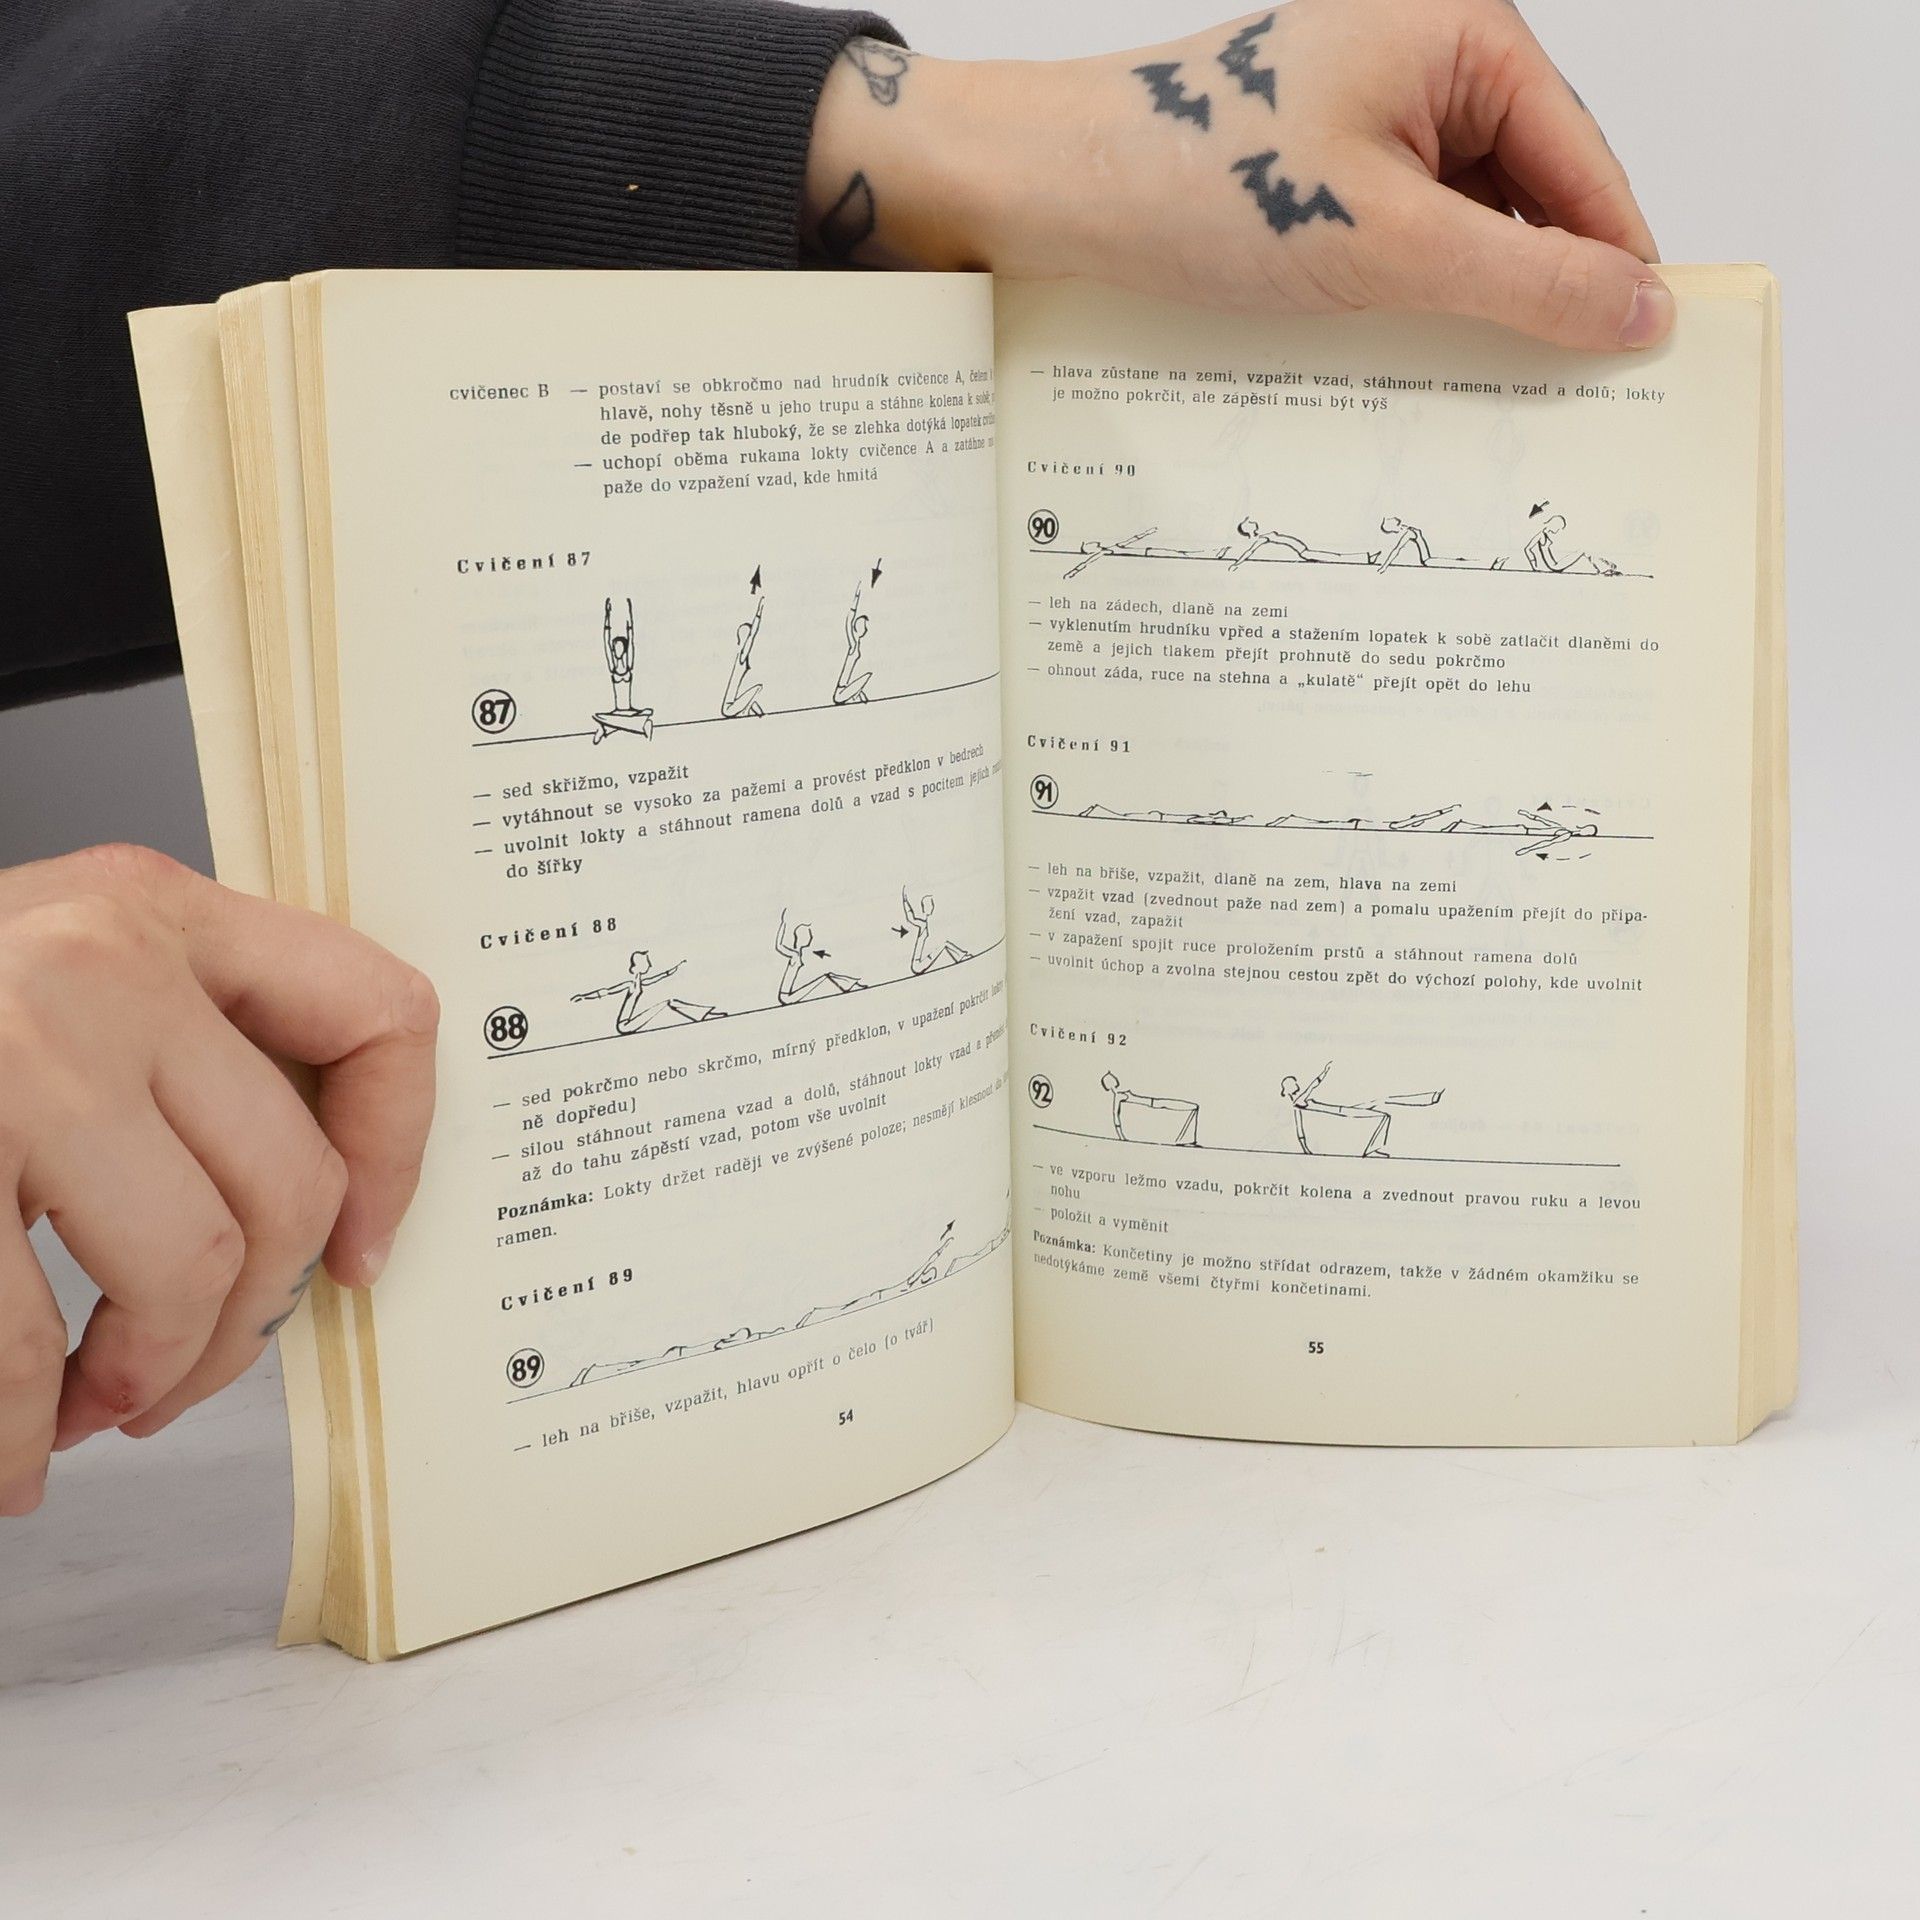 cvičenec B — postaví se obkročmo nad hrudník cvičence A, čelem k
hlavě, nohy těsně u jeho trupu a stáhne kolena k sobě,
de podřep tak hluboký, že se zlehka dotýká lopatek
— uchopí oběma rukama lokty cvičence A a zatáhne
paže do vzpažení vzad, kde hmitá
Cvičení 87
87
— sed skřižmo, vzpažit
— vytáhnout se vysoko za pažemi a provést předklon v bedrech
— uvolnit lokty a stáhnout ramena dolů a vzad s pocitem jejich
do šířky
Cvičení 88
88
— sed pokrčmo nebo skrčmo, mírný předklon, v upažení pokrčit
ně dopředu)
— silou stáhnout ramena vzad a dolů, stáhnout lokty vzad a
až do tahu zápěstí vzad, potom vše uvolnit
Poznámka: Lokty držet raději ve zvýšené poloze; nesmějí klesnout
ramen.
Cvičení 89
89
— leh na břiše, vzpažit, hlavu opřít o čelo (o tvář)
54
— hlava zůstane na zemi, vzpažit vzad, stáhnout ramena vzad a dolů; lokty
je možno pokrčit, ale zápěstí musí být výš
Cvičení 90
90
— leh na zádech, dlaně na zemi
— vyklenutím hrudníku vpřed a stažením lopatek k sobě zatlačit dlaněmi do
země a jejich tlakem přejít prohnutě do sedu pokrčmo
— ohnout záda, ruce na stehna a „kulatě“ přejít opět do lehu
Cvičení 91
91
— leh na břiše, vzpažit, dlaně na zem, hlava na zemi
— vzpažit vzad (zvednout paže nad zem) a pomalu upažením přejít do připa-
žení vzad, zapažit
— v zapažení spojit ruce proložením prstů a stáhnout ramena dolů
— uvolnit úchop a zvolna stejnou cestou zpět do výchozí polohy, kde uvolnit
Cvičení 92
92
— ve vzporu ležmo vzadu, pokrčit kolena a zvednout pravou ruku a levou
nohu
— položit a vyměnit
Poznámka: Končetiny je možno střídat odrazem, takže v žádném okamžiku se
nedotýkáme země všemi čtyřmi končetinami.
55